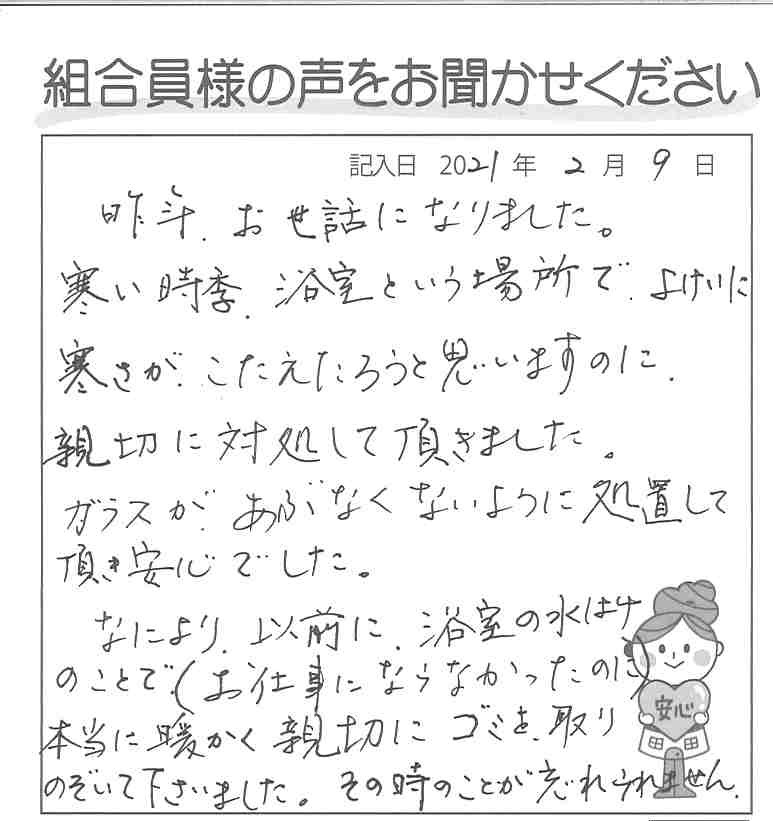 組合員様の声をお聞かせください
記入日 2021年 2月 9日
昨年、お世話になりました。
寒い時季、浴室という場所で、よけいに
寒さが、こたえたろうと思いますのに、
親切に対処して頂きました。
ガラスが、あぶなくないように処置して
頂き安心でした。
なにより、以前に、浴室の水はけ
のことで、(お仕事にならなかったのに)
本当に暖かく親切にゴミを、取り
のぞいて下さいました。その時のことが忘れられません。
安心